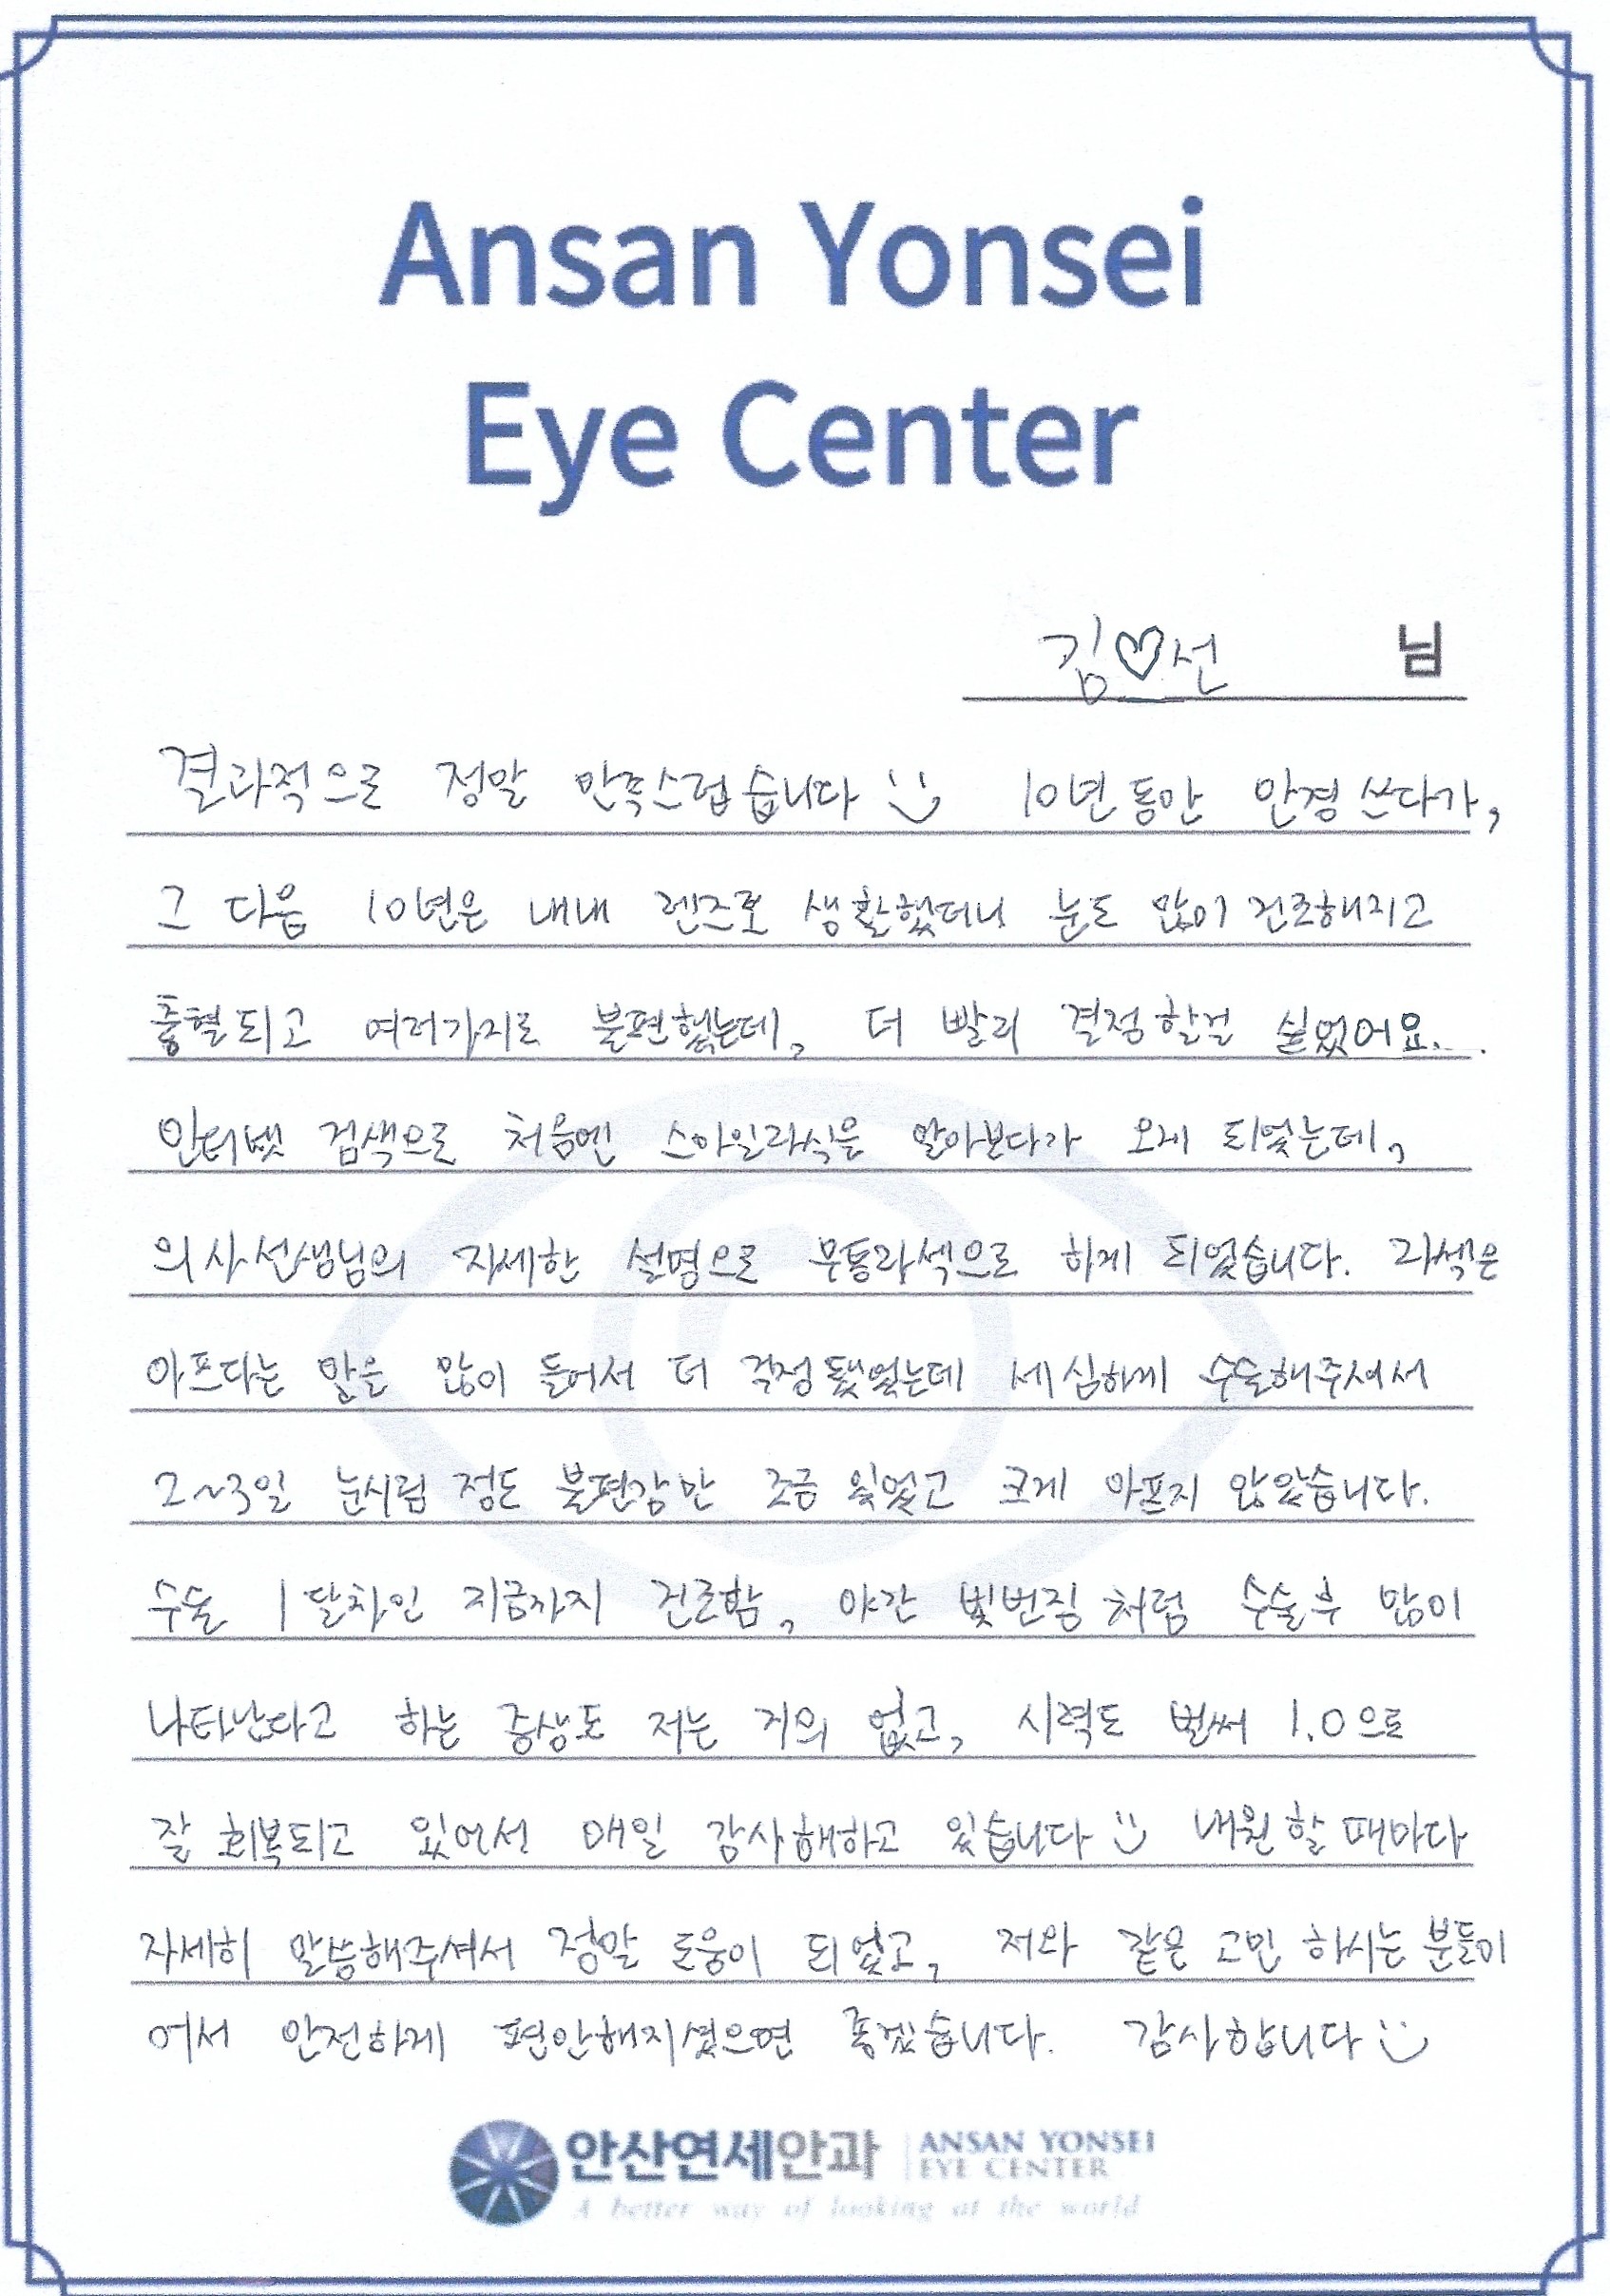 Ansan Yonsei
Eye Center
김♡선 님
결과적으로 정말 만족스럽습니다 :) 10년동안 안경쓰다가,
그 다음 10년은 내내 렌즈로 생활했더니 눈도 많이 건조해지고
충혈되고 여러가지로 불편했는데, 더 빨리 결정할걸 싶었어요...
인터넷 검색으로 처음엔 스마일라식을 알아보다가 오게 되었는데,
의사선생님의 자세한 설명으로 무통라섹으로 하게 되었습니다. 라섹은
아프다는 말을 많이 들어서 더 걱정됐었는데 세심하게 수술해주셔서
2~3일 눈시림 정도 불편감만 조금 있었고 크게 아프지 않았습니다.
수술 1달차인 지금까지 건조함, 야간 빛번짐 처럼 수술후 많이
나타난다고 하는 증상도 저는 거의 없고, 시력도 벌써 1.0으로
잘 회복되고 있어서 매일 감사해하고 있습니다 :) 내원할 때마다
자세히 말씀해주셔서 정말 도움이 되었고, 저와 같은 고민 하시는 분들이
어서 안전하게 편안해지셨으면 좋겠습니다. 감사합니다 :)
안산연세안과 ANSAN YONSEI
EYE CENTER
A better way of looking at the world